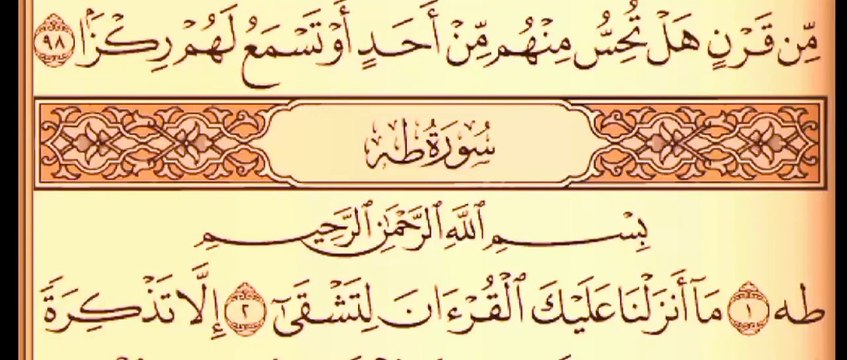 مِّن قَرْنٍ هَلْ تُحِسُّ مِنْهُم مِّنْ أَحَدٍ أَوْ تَسْمَعُ لَهُمْ رِكْزًۢا ٩٨
سُورَةُ طه
بِسْمِ ٱللَّهِ ٱلرَّحْمَٰنِ ٱلرَّحِيمِ
طه ١ مَآ أَنزَلْنَا عَلَيْكَ ٱلْقُرْءَانَ لِتَشْقَىٰٓ ٢ إِلَّا تَذْكِرَةً